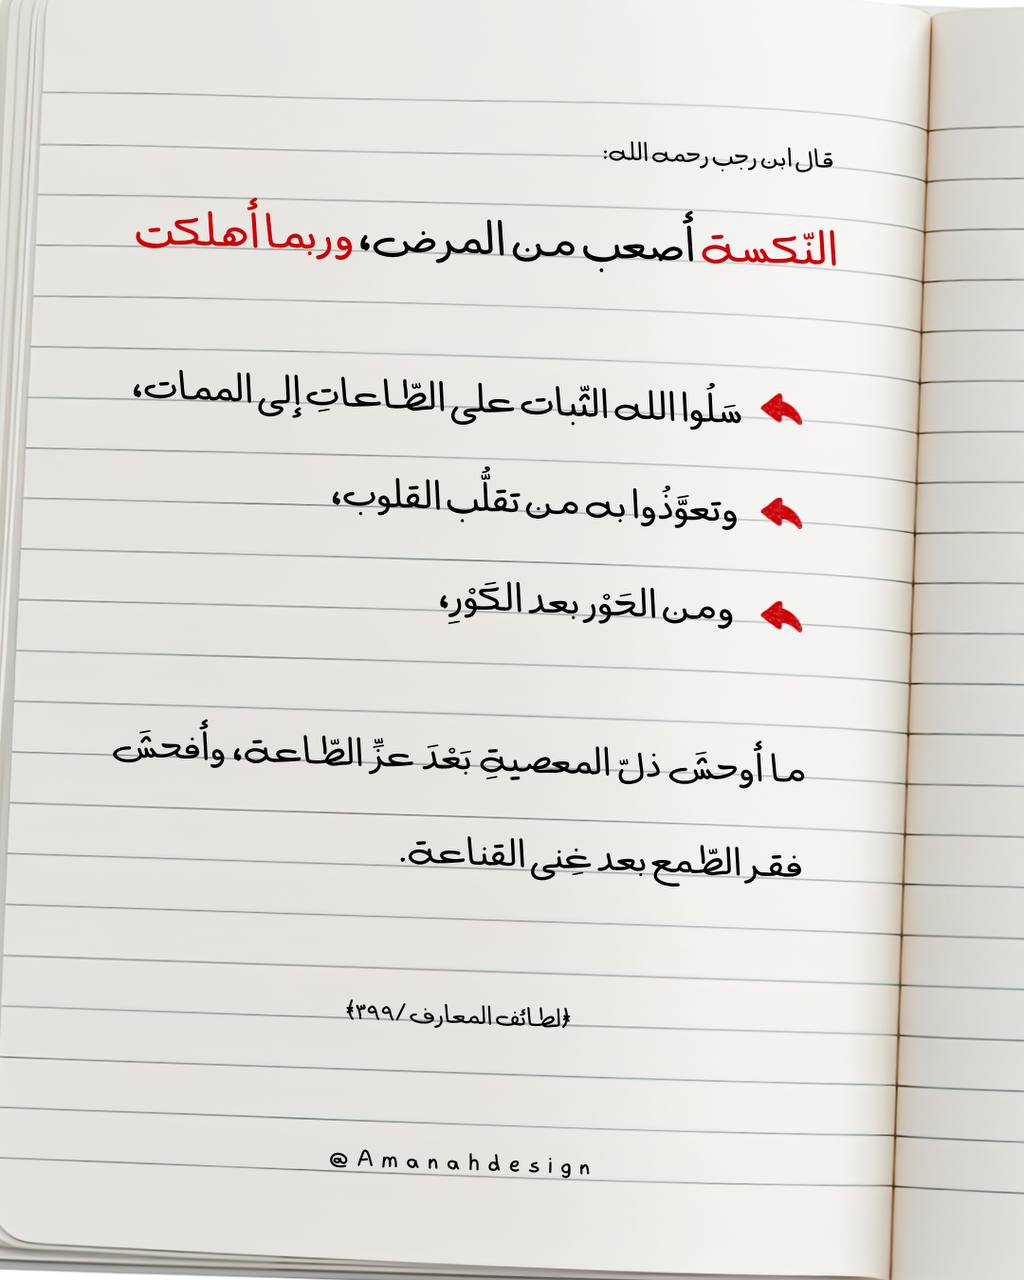 قال ابن رجب رحمه الله:
النّكسة أصعب من المرض، وربما أهلكت
سَلُوا الله الثّبات على الطّاعاتِ إلى الممات،
وتعوَّذُوا به من تقلُّب القلوب،
ومن الحَوْر بعد الكَوْرِ،
ما أوحشَ ذلّ المعصيةِ بَعْدَ عزِّ الطّاعة، وأفحشَ
فقر الطّمع بعد غِنى القناعة.
﴿لطائف المعارف/٣٩٩﴾
@Amanahdesign